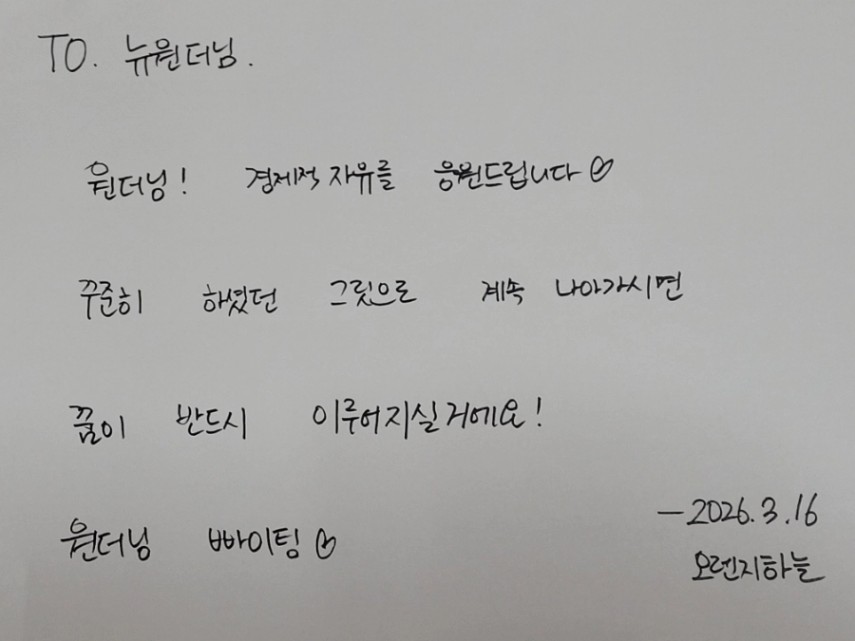 TO. 뉴원더님.
원더님! 경제적 자유를 응원드립니다♡
꾸준히 하셨던 그릿으로 계속 나아가시면
꿈이 반드시 이루어지실거에요!
원더님 빠이팅♡
-2026.3.16
오렌지하늘